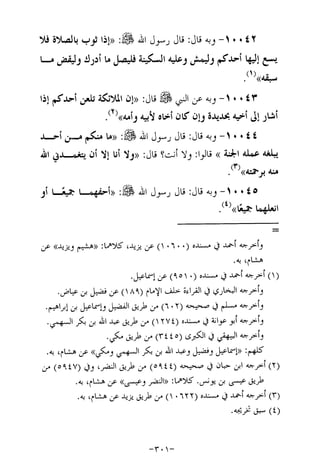 ١٠٠٤٢- وبه قال: قال رسول الله ﷺ: «إذا ثوب بالصلاة فلا
يسع إليها أحدكم وليمش وعليه السكينة فليصل ما أدرك وليقض ما
سبقه»(١).
١٠٠٤٣- وبه عن النبي ﷺ قال: «إن الملائكة تلعن أحدكم إذا
أشار إلى أخيه بحديدة وإن كان أخاه لأبيه وأمه»(٢).
١٠٠٤٤- وبه قال: قال رسول الله ﷺ: «ما منكم من أحد
يبلغه عمله الجنة» قالوا: ولا أنت؟ قال: «ولا أنا إلا أن يتغمدني الله
منه برحمته»(٣).
١٠٠٤٥- وبه قال: قال رسول الله ﷺ: «أحفهما جميعًا أو
انعلهما جميعًا»(٤).
=
وأخرجه أحمد في مسنده (١٠٦٠٠) عن يزيد، كلاهما: «هشيم ويزيد» عن
هشام، به.
(١) أخرجه أحمد في مسنده (٩٥١٠) عن إسماعيل.
وأخرجه البخاري في القراءة خلف الإمام (١٨٩) عن فضيل بن عياض.
وأخرجه مسلم في صحيحه (٦٠٢) من طريق الفضيل وإسماعيل بن إبراهيم.
وأخرجه أبو عوانة في مسنده (١٢٧٤) من طريق عبد الله بن بكر السهمي.
وأخرجه البيهقي في الكبرى (٣٤٤٥) من طريق مكي.
كلهم: «إسماعيل وفضيل وعبد الله بن بكر السهمي ومكي» عن هشام، به.
(٢) أخرجه ابن حبان في صحيحه (٥٩٤٤) من طريق النضر، وفي (٥٩٤٧) من
طريق عيسى بن يونس. كلاهما: «النضر وعيسى» عن هشام، به.
(٣) أخرجه أحمد في مسنده (١٠٦٢٢) من طريق يزيد عن هشام، به.
(٤) سبق تخريجه.
-٣٠١-